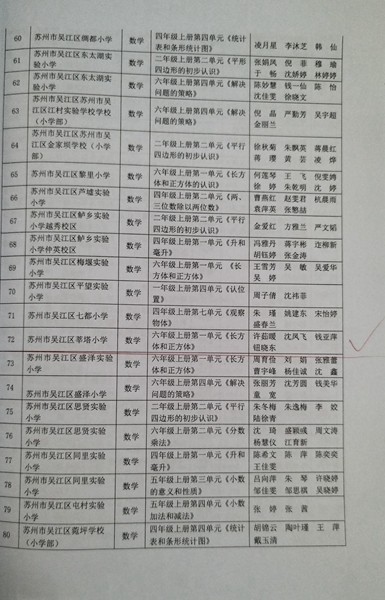 60 苏州市吴江区绸都小学 数学 四年级上册第四单元《统计表和条形统计图》 凌月星 李沐芝 韩 仙
61 苏州市吴江区东太湖实验小学 数学 二年级上册第二单元《平行四边形的初步认识》 张娟凤 倪 菲 穆 瑜 于 畅 沈娇婷 林婷婷
62 苏州市吴江区东太湖实验小学 数学 六年级上册第四单元《解决问题的策略》 陈妙慧 钱一仙 陈 怡 沈佳雯 徐晓文
63 苏州市吴江区苏州市吴江区江村实验学校学校(小学部) 数学 六年级上册第四单元《解决问题的策略》 倪 晶 严勤芳 吴宇超 金丽兰
64 苏州市吴江区苏州市吴江区金家坝学校(小学部) 数学 二年级上册第二单元《平行四边形的初步认识》 徐秋菊 朱飘英 蒋晨红 蒋 璎 黄 芸 凌 烨
65 苏州市吴江区黎里小学 数学 六年级上册第一单元《长方体和正方体的认识》 何莲琴 王 飞 倪雯娉 徐 婷 朱乾明 沈 婷
66 苏州市吴江区芦墟实验小学 数学 四年级上册第二单元《两、三位数除以两位数》 曹燕红 赵雯君 杭晨雨 袁萍英 张憨喆
67 苏州市吴江区鲈乡实验小学越秀校区 数学 二年级上册第二单元《平行四边形的初步认识》 金爱红 方雅兰 严文韬
68 苏州市吴江区鲈乡实验小学仲英校区 数学 四年级上册第一单元《升和毫升》 冯雅丹 蒋宇彬 连柳新 胡钰婷 张金涛
69 苏州市吴江区梅堰实验小学 数学 六年级上册第一单元 《长方体和正方体》 王雪芳 吴 敏 吴爱华 吴 婷
70 苏州市吴江区平望实验小学 数学 一年级上册第四单元《认位置》 周子倩 沈祎菲
71 苏州市吴江区七都小学 数学 四年级上册第七单元《观察物体》 朱 瑾 姚建东 宋怡婷 盛春兰
72 苏州市吴江区莘塔小学 数学 六年级上册第一单元《长方体和正方体》 许茹暖 沈凤飞 钱亚萍 钮晓东
73 苏州市吴江区盛泽实验小学 数学 六年级上册第一单元《长方体和正方体》 周育俭 刘 娟 张雅量 曹宇峰 杨佳诚 沈 鑫
74 苏州市吴江区盛泽小学 数学 六年级上册第四单元《解决问题的策略》 张丽芳 沈芳圆 钱美华 童 宽
75 苏州市吴江区思贤实验小学 数学 二年级上册第二单元《平行四边形的初步认识》 朱冬梅 朱逸梅 李 姣 陆徐青
76 苏州市吴江区思贤实验小学 数学 六年级上册第二单元《分数乘法》 沈 琦 盛颖彧 周文涛 杨慧仪 江育新
77 苏州市吴江区同里实验小学 数学 四年级上册第一单元《升和毫升》 陈希文 陈 萍 陈奕奕 王佳雯
78 苏州市吴江区同里实验小学 数学 五年级上册第三单元《小数的意义和性质》 吕向萍 朱 琴 许晓婷 邹佳雯 邹思祺 吴晓婷
79 苏州市吴江区屯村实验小学 数学 五年级上册第四单元《小数加法和减法》 张 婷 张 茜
80 苏州市吴江区菀坪学校(小学部) 数学 四年级上册第四单元《统计表和条形统计图》 胡锦云 陶叶瑾 王 萍 戴玉清